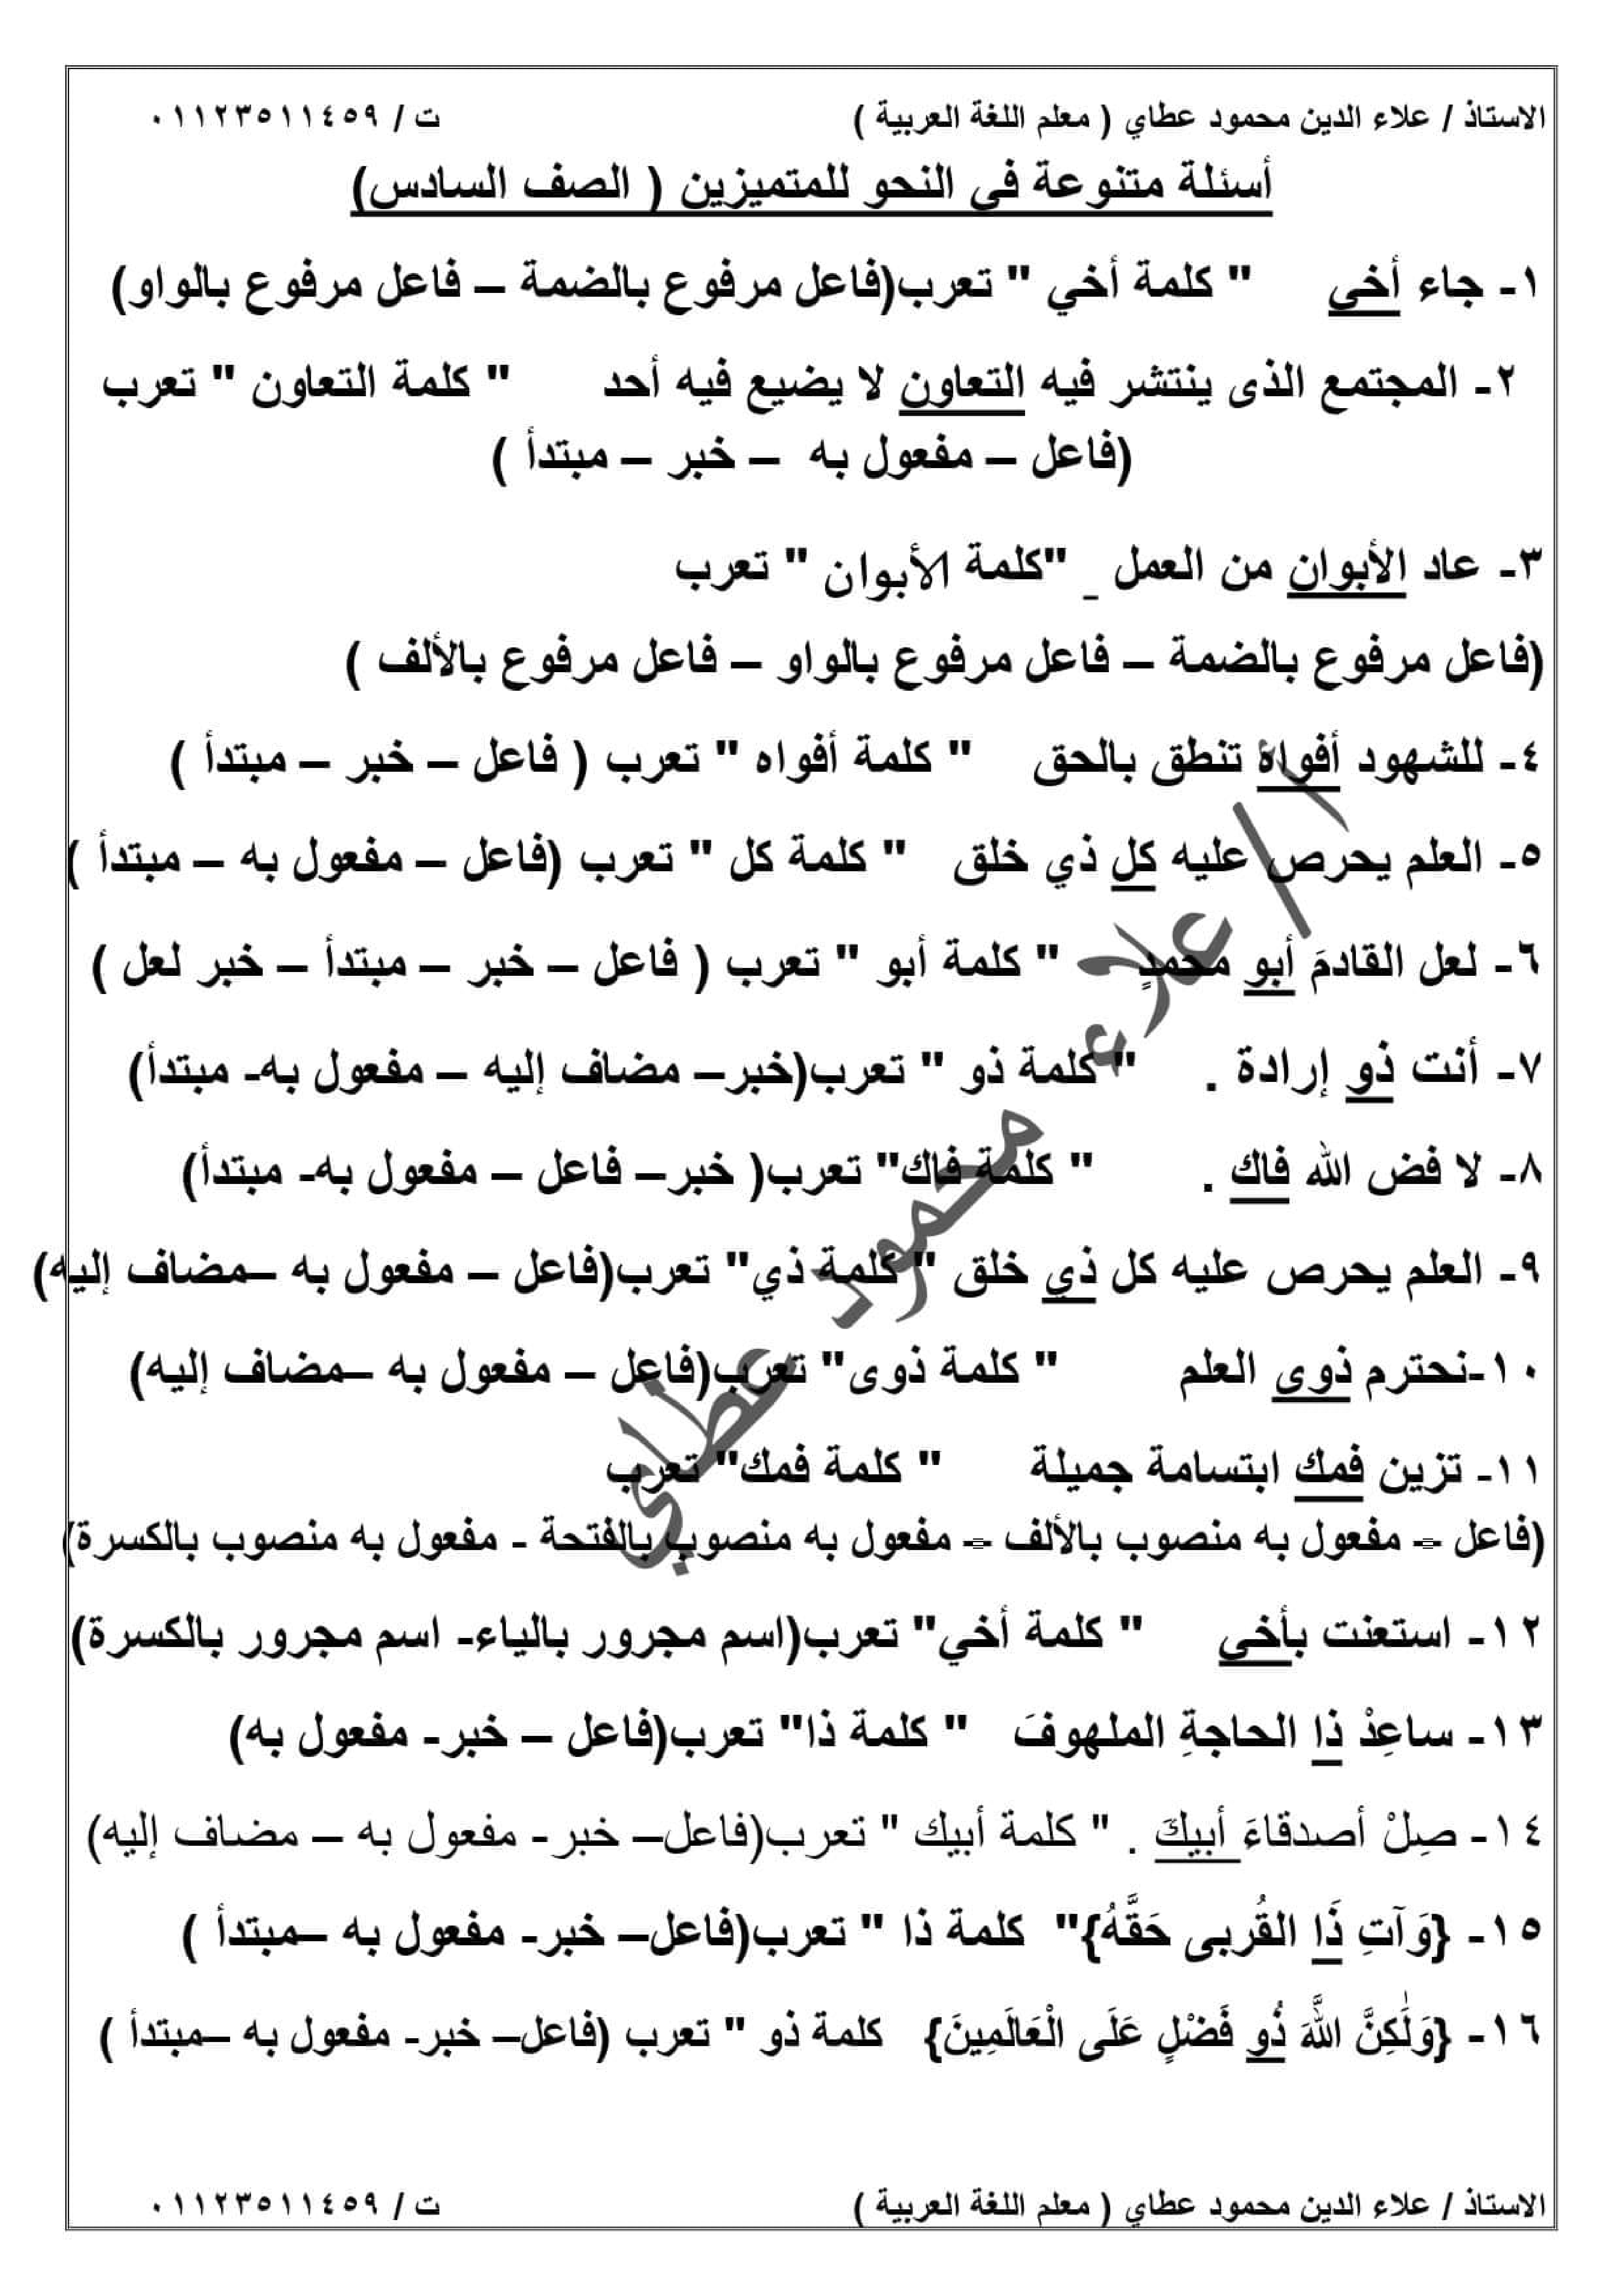 الاستاذ / علاء الدين محمود عطاي ( معلم اللغة العربية ) ت / ٠١١٢٣٥١١٤٥٩
أسئلة متنوعة في النحو للمتميزين ( الصف السادس)
١- جاء أخي " كلمة أخي " تعرب(فاعل مرفوع بالضمة – فاعل مرفوع بالواو)
٢- المجتمع الذى ينتشر فيه التعاون لا يضيع فيه أحد " كلمة التعاون " تعرب
(فاعل – مفعول به – خبر – مبتدأ )
٣- عاد الأبوان من العمل _ "كلمة الأبوان " تعرب
(فاعل مرفوع بالضمة – فاعل مرفوع بالواو – فاعل مرفوع بالألف )
٤- للشهود أفواهٌ تنطق بالحق " كلمة أفواه " تعرب ( فاعل – خبر – مبتدأ )
٥- العلم يحرص عليه كل ذي خلق " كلمة كل " تعرب (فاعل – مفعول به – مبتدأ )
٦- لعل القادمَ أبو محمدٍ " كلمة أبو " تعرب ( فاعل – خبر – مبتدأ – خبر لعل )
٧- أنت ذو إرادة . " كلمة ذو " تعرب(خبر– مضاف إليه – مفعول به- مبتدأ)
٨- لا فض الله فاك . " كلمة فاك" تعرب( خبر– فاعل – مفعول به- مبتدأ)
٩- العلم يحرص عليه كل ذي خلق " كلمة ذي" تعرب(فاعل – مفعول به –مضاف إليه)
١٠-نحترم ذوى العلم " كلمة ذوى" تعرب(فاعل – مفعول به –مضاف إليه)
١١- تزين فمك ابتسامة جميلة " كلمة فمك" تعرب
(فاعل – مفعول به منصوب بالألف – مفعول به منصوب بالفتحة - مفعول به منصوب بالكسرة)
١٢- استعنت بأخي " كلمة أخي" تعرب(اسم مجرور بالياء- اسم مجرور بالكسرة)
١٣- ساعِدْ ذا الحاجةِ الملهوفَ " كلمة ذا" تعرب(فاعل – خبر- مفعول به)
١٤- صِلْ أصدقاءَ أبيكَ . " كلمة أبيك " تعرب(فاعل– خبر- مفعول به – مضاف إليه)
١٥- {وَآتِ ذَا القُربى حَقَّهُ}" كلمة ذا " تعرب(فاعل– خبر- مفعول به –مبتدأ )
١٦- {وَلَٰكِنَّ اللَّهَ ذُو فَضْلٍ عَلَى الْعَالَمِينَ} كلمة ذو " تعرب (فاعل– خبر- مفعول به –مبتدأ )
ا / علاء محمود عطاي
الاستاذ / علاء الدين محمود عطاي ( معلم اللغة العربية ) ت / ٠١١٢٣٥١١٤٥٩